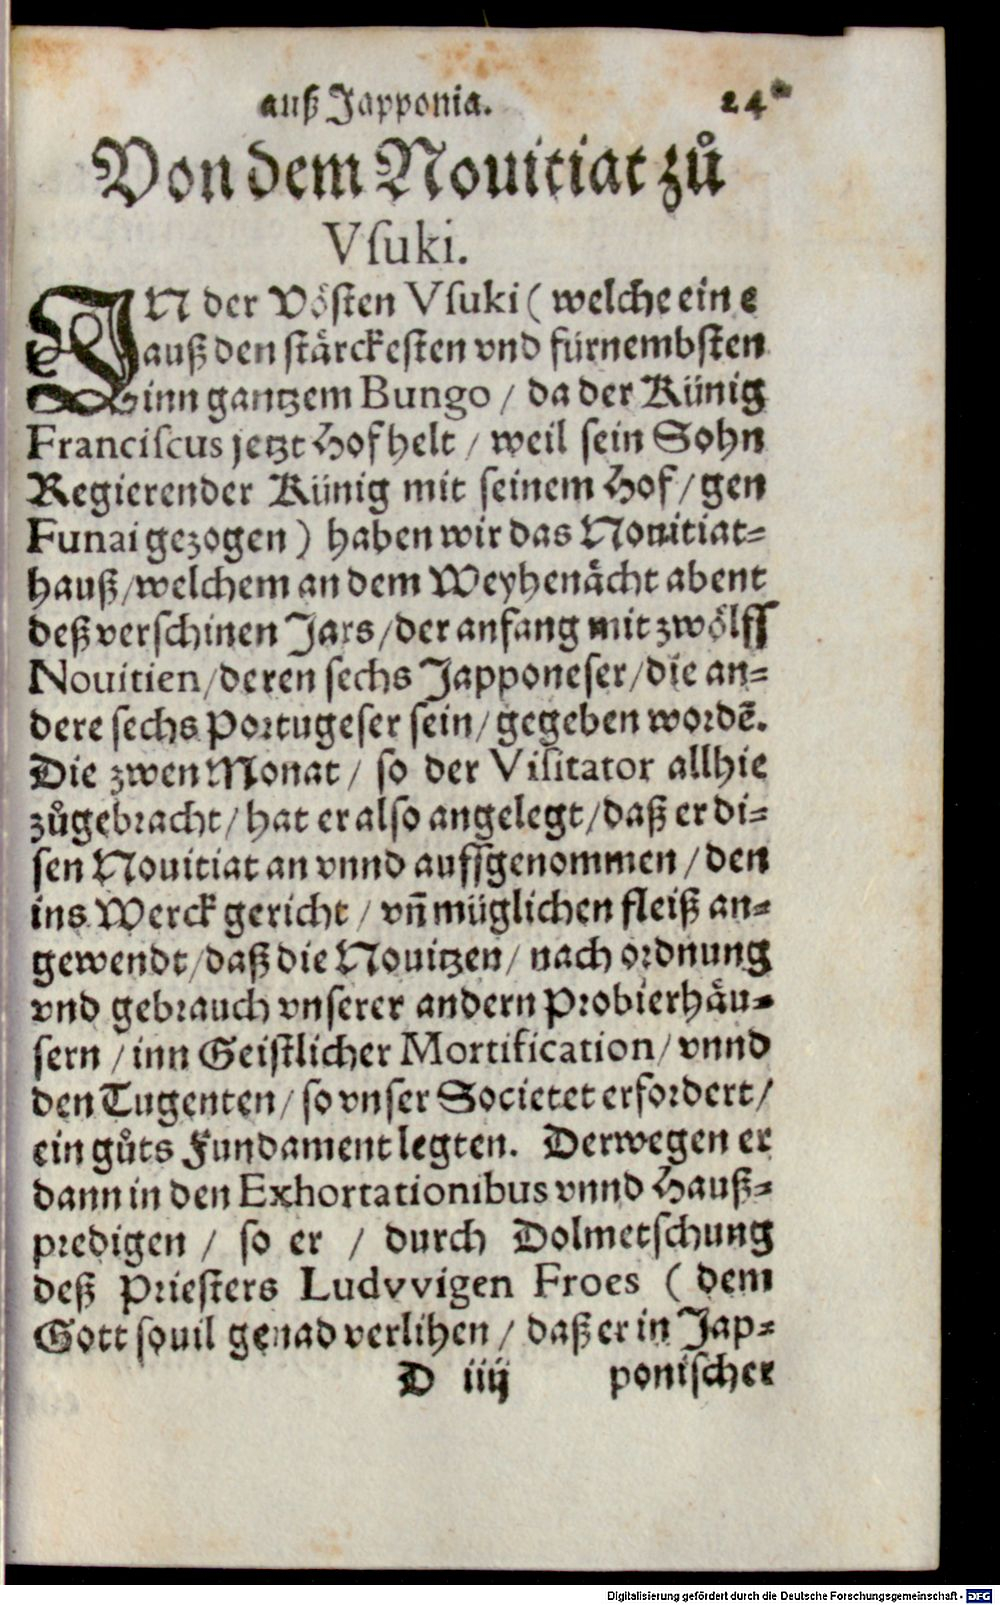 auß Japponia. 24
Von dem Nouitiat zů
Vſuki.
IN der Vöſten Vſuki ( welche eine
auß den ſtärckeſten vnd fürnembſten
inn gantzem Bungo / da der Künig
Franciſcus jetzt Hof helt / weil ſein Sohn
Regierender Künig mit ſeinem Hof / gen
Funai gezogen ) haben wir das Nouitiat=
hauß / welchem an dem Weyhenächt abent
deß verſchinen Jars / der anfang mit zwölff
Nouitien / deren ſechs Japponeſer / die an=
dere ſechs Portugeſer ſein / gegeben wordē.
Die zwen Monat / ſo der Viſitator allhie
zůgebracht / hat er alſo angelegt / daß er di=
ſen Nouitiat an vnnd auffgenommen / den
ins Werck gericht / vn̄ müglichen fleiß an=
gewendt / daß die Nouitzen / nach ordnung
vnd gebrauch vnſerer andern Probierhäu=
ſern / inn Geiſtlicher Mortification / vnnd
den Tugenten / ſo vnſer Societet erfordert /
ein gůts Fundament legten. Derwegen er
dann in den Exhortationibus vnnd Hauß=
predigen / ſo er / durch Dolmetſchung
deß Prieſters Ludvvigen Froes ( dem
Gott ſouil genad verlihen / daß er in Jap=
D iiij poniſcher
Digitalisierung gefördert durch die Deutsche Forschungsgemeinschaft - DFG